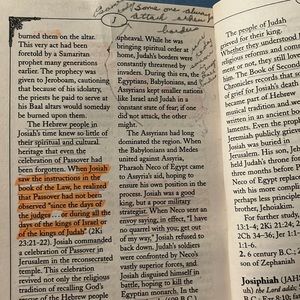 Some one always
attack when
1
burned them on the altar.
This very act had been
foretold by a Samaritan
prophet many generations
earlier. The prophecy was
given to Jeroboam, cautioning
that because of his idolatry,
the priests he paid to serve at
his Baal altars would someday
be burned upon them.
The Hebrew people in
Josiah's time knew so little of
their spiritual and cultural
heritage that even the
celebration of Passover had
been forgotten. When Josiah
saw the instructions in the
book of the Law, he realized
that Passover had not been
observed "since the days of
the judges ... or during all the
days of the kings of Israel or
of the kings of Judah" (2Ki
23:21-22). Josiah commanded
a celebration of Passover in
Jerusalem in the reconsecrated
temple. This celebration
revived not only the religious
tradition of recalling God's
upheaval. He while he was
bringing spiritual order at
home, Judah's borders were
constantly threatened by
invaders. During this era, the
Egyptians, Babylonians, and
Assyrians kept smaller nations
like Israel and Judah in a
constant state of fear; if one
did not attack, the other
might.
The Assyrians had long
dominated the region. When
the Babylonians and Medes
united against Assyria,
Pharaoh Neco of Egypt came
to Assyria's aid, hoping to
ensure his own position in the
process. Josiah was a good
king, but a poor military
strategist. When Neco sent an
envoy saying, in effect, "I have
no quarrel with you, get out
of my way," Josiah refused to
back down. Judah's soldiers
were confronted by Neco's
vastly superior forces, and
Josiah disguised himself in
battle, hoping to kill the
Egyptian monarch. In the
The people of Judah
grieved for their king.
Whether they understood
religious reforms and
ment of not, they
him. The Book of Second
Chronicles records that
of grief for Josiah's death
became part of Hebrew
musical tradition and were
written in an ancient book
laments. Even the prophet
Jeremiah publicly
Josiah was buried in
Jerusalem. His son, Jeho
held Judah's throne for
months before
Neco of Egypt replace
with his more
perhaps less
principled brother,
For further study
13:1-4; 2Ki 21:2
2Ch 34-36; Jer 1:1
1:1-6.
2. 6 century B.C.;
son of Zephaniah
Josiphiah
the Lord adds